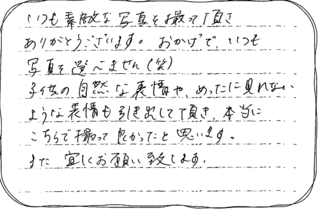 いつも素敵な写真を撮って頂き
ありがとうございます。おかげで、いつも
写真を選べません(笑)
子供の自然な表情や、めったに見れない
ような表情も引き出して頂き、本当に
こちらで撮って良かったと思います。
また宜しくお願い致します。